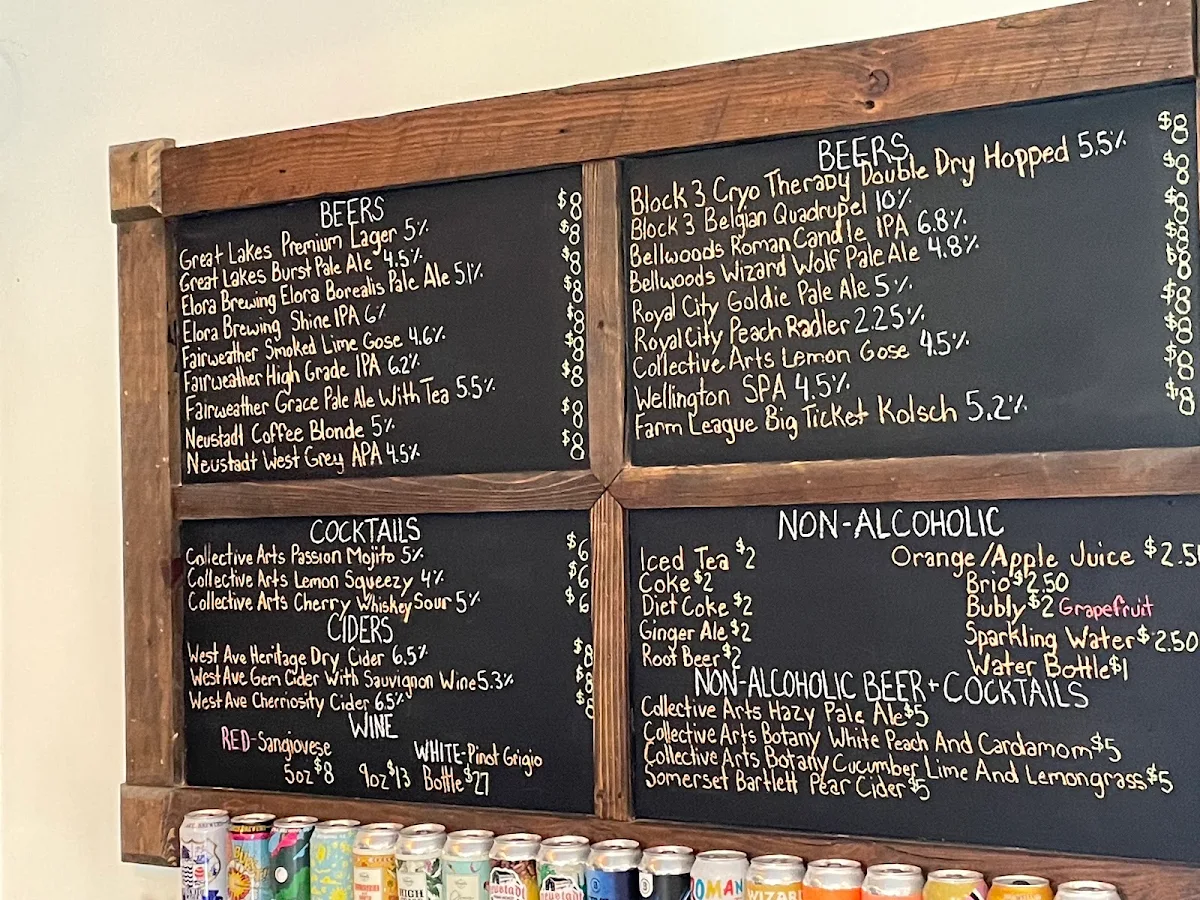 BEERS
Great Lakes Premium Lager 5% $8
Great Lakes Burst Pale Ale 4.5% $8
Elora Brewing Elora Borealis Pale Ale 5.1% $8
Elora Brewing Shine IPA 6% $8
Fairweather Smoked Lime Gose 4.6% $8
Fairweather High Grade IPA 6.2% $8
Fairweather Grace Pale Ale With Tea 5.5% $8
Neustadt Coffee Blonde 5% $8
Neustadt West Grey APA 4.5% $8
BEERS
Block 3 Cryo Therapy Double Dry Hopped 5.5% $8
Block 3 Belgian Quadrupel 10% $8
Bellwoods Roman Candle IPA 6.8% $8
Bellwoods Wizard Wolf Pale Ale 4.8% $8
Royal City Goldie Pale Ale 5% $8
Royal City Peach Radler 2.25% $8
Collective Arts Lemon Gose 4.5% $8
Wellington SPA 4.5% $8
Farm League Big Ticket Kolsch 5.2% $8
COCKTAILS
Collective Arts Passion Mojito 5% $6
Collective Arts Lemon Squeezy 4% $6
Collective Arts Cherry Whiskey Sour 5% $6
CIDERS
West Ave Heritage Dry Cider 6.5% $8
West Ave Gem Cider With Sauvignon Wine 5.3% $8
West Ave Cherriosity Cider 6.5% $8
WINE
RED-Sangiovese WHITE-Pinot Grigio
5oz $8 9oz $13 Bottle $27
NON-ALCOHOLIC
Iced Tea $2 Orange/Apple Juice $2.50
Coke $2 Brio $2.50
Diet Coke $2 Bubly $2 Grapefruit
Ginger Ale $2 Sparkling Water $2.50
Root Beer $2 Water Bottle $1
NON-ALCOHOLIC BEER + COCKTAILS
Collective Arts Hazy Pale Ale $5
Collective Arts Botany White Peach And Cardamom $5
Collective Arts Botany Cucumber Lime And Lemongrass $5
Somerset Bartlett Pear Cider $5
HIGH
neustadt
neustadt
ROMAN
WIZARD